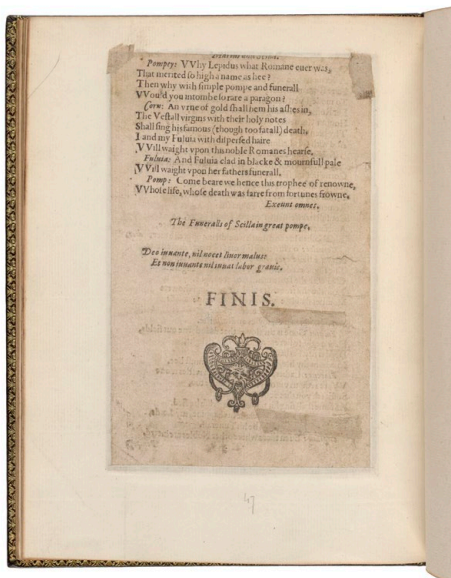 Pompey: VVhy Lepidus what Romane euer was,
That merited so high a name as hee?
Then why with simple pompe and funerall
VVou'd you intombe so rare a paragon?
Corn: An vrne of gold shall hem his ashes in,
The Vestall virgins with their holy notes
Shall sing his famous (though too fatall) death,
I and my Fuluia with dispersed haire
VVill waight vpon this noble Romanes hearse.
Fuluia: And Fuluia clad in blacke & mournfull pale
VVill waight vpon her fathers funerall.
Pomp: Come beare we hence this trophee of renowne,
VVhose life, whose death was farre from fortunes frowne.
Exeunt omnes.
The Funeralls of Scilla in great pompe.
Deo iuuante, nil nocet liuor malus:
Et non iuuante nil iuuat labor grauis.
FINIS.
47